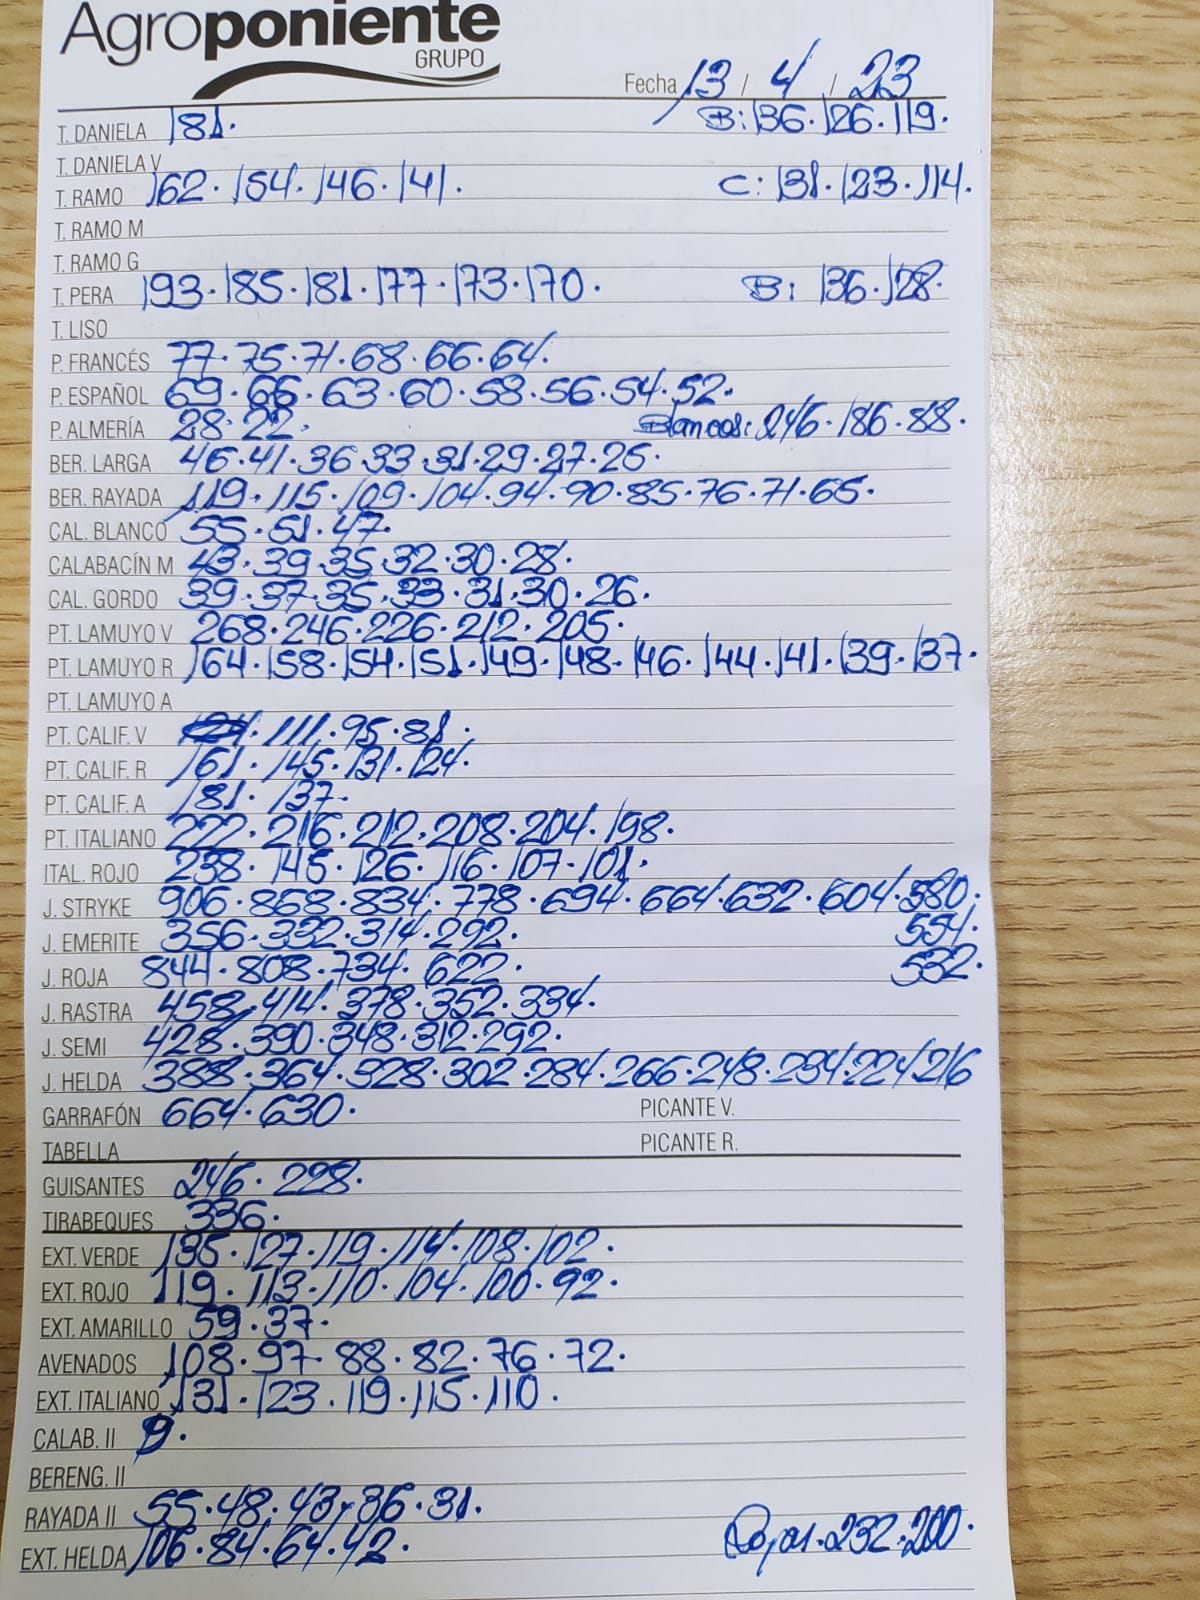 Agroponiente
GRUPO
Fecha 13 / 4 / 23
T. DANELA 181. B: 136. 126. 119.
T. DANIELA V
T. RAMO 162. 154. 146. 141. C: 131. 123. 114.
T. RAMO M
T. RAMO G
T. PERA 193. 185. 181. 177. 173. 170. B: 136. 128.
T. LISO
P. FRANCÉS 77. 75. 71. 68. 66. 64.
P. ESPAÑOL 69. 66. 63. 60. 58. 56. 54. 52.
P. ALMERÍA 28. 22. Blancos: 246. 186. 88.
BER. LARGA 46. 41. 36. 33. 31. 29. 27. 25.
BER. RAYADA 119. 115. 109. 104. 94. 90. 85. 76. 71. 65.
CAL. BLANCO 55. 51. 47.
CALABACÍN M 43. 39. 35. 32. 30. 28.
CAL. GORDO 39. 37. 35. 33. 31. 30. 26.
PT. LAMUYO V 268. 246. 226. 212. 205.
PT. LAMUYO R 164. 158. 154. 151. 149. 148. 146. 144. 141. 139. 137.
PT. LAMUYO A
PT. CALIF. V 111. 95. 81.
PT. CALIF. R 161. 145. 131. 124.
PT. CALIF. A 181. 137.
PT. ITALIANO 222. 216. 212. 208. 204. 198.
ITAL. ROJO 238. 145. 126. 116. 107. 101.
J. STRYKE 906. 868. 834. 778. 694. 664. 632. 604. 580.
554.
J. EMERITE 356. 332. 314. 292.
532.
J. ROJA 844. 808. 734. 622.
J. RASTRA 458. 414. 378. 352. 334.
J. SEMI 428. 390. 348. 312. 292.
J. HELDA 388. 364. 328. 302. 284. 266. 248. 234. 224. 216
GARRAFÓN 664. 630. PICANTE V.
TABELLA PICANTE R.
GUISANTES 246. 228.
TIRABEQUES 336.
EXT. VERDE 135. 127. 119. 114. 108. 102.
EXT. ROJO 119. 113. 110. 104. 100. 92.
EXT. AMARILLO 59. 37.
AVENADOS 108. 97. 88. 82. 76. 72.
EXT. ITALIANO 131. 123. 119. 115. 110.
CALAB. II 9.
BERENG. II
RAYADA II 55. 48. 43. 36. 31.
EXT. HELDA 106. 84. 64. 42. Rojas. 232. 200.